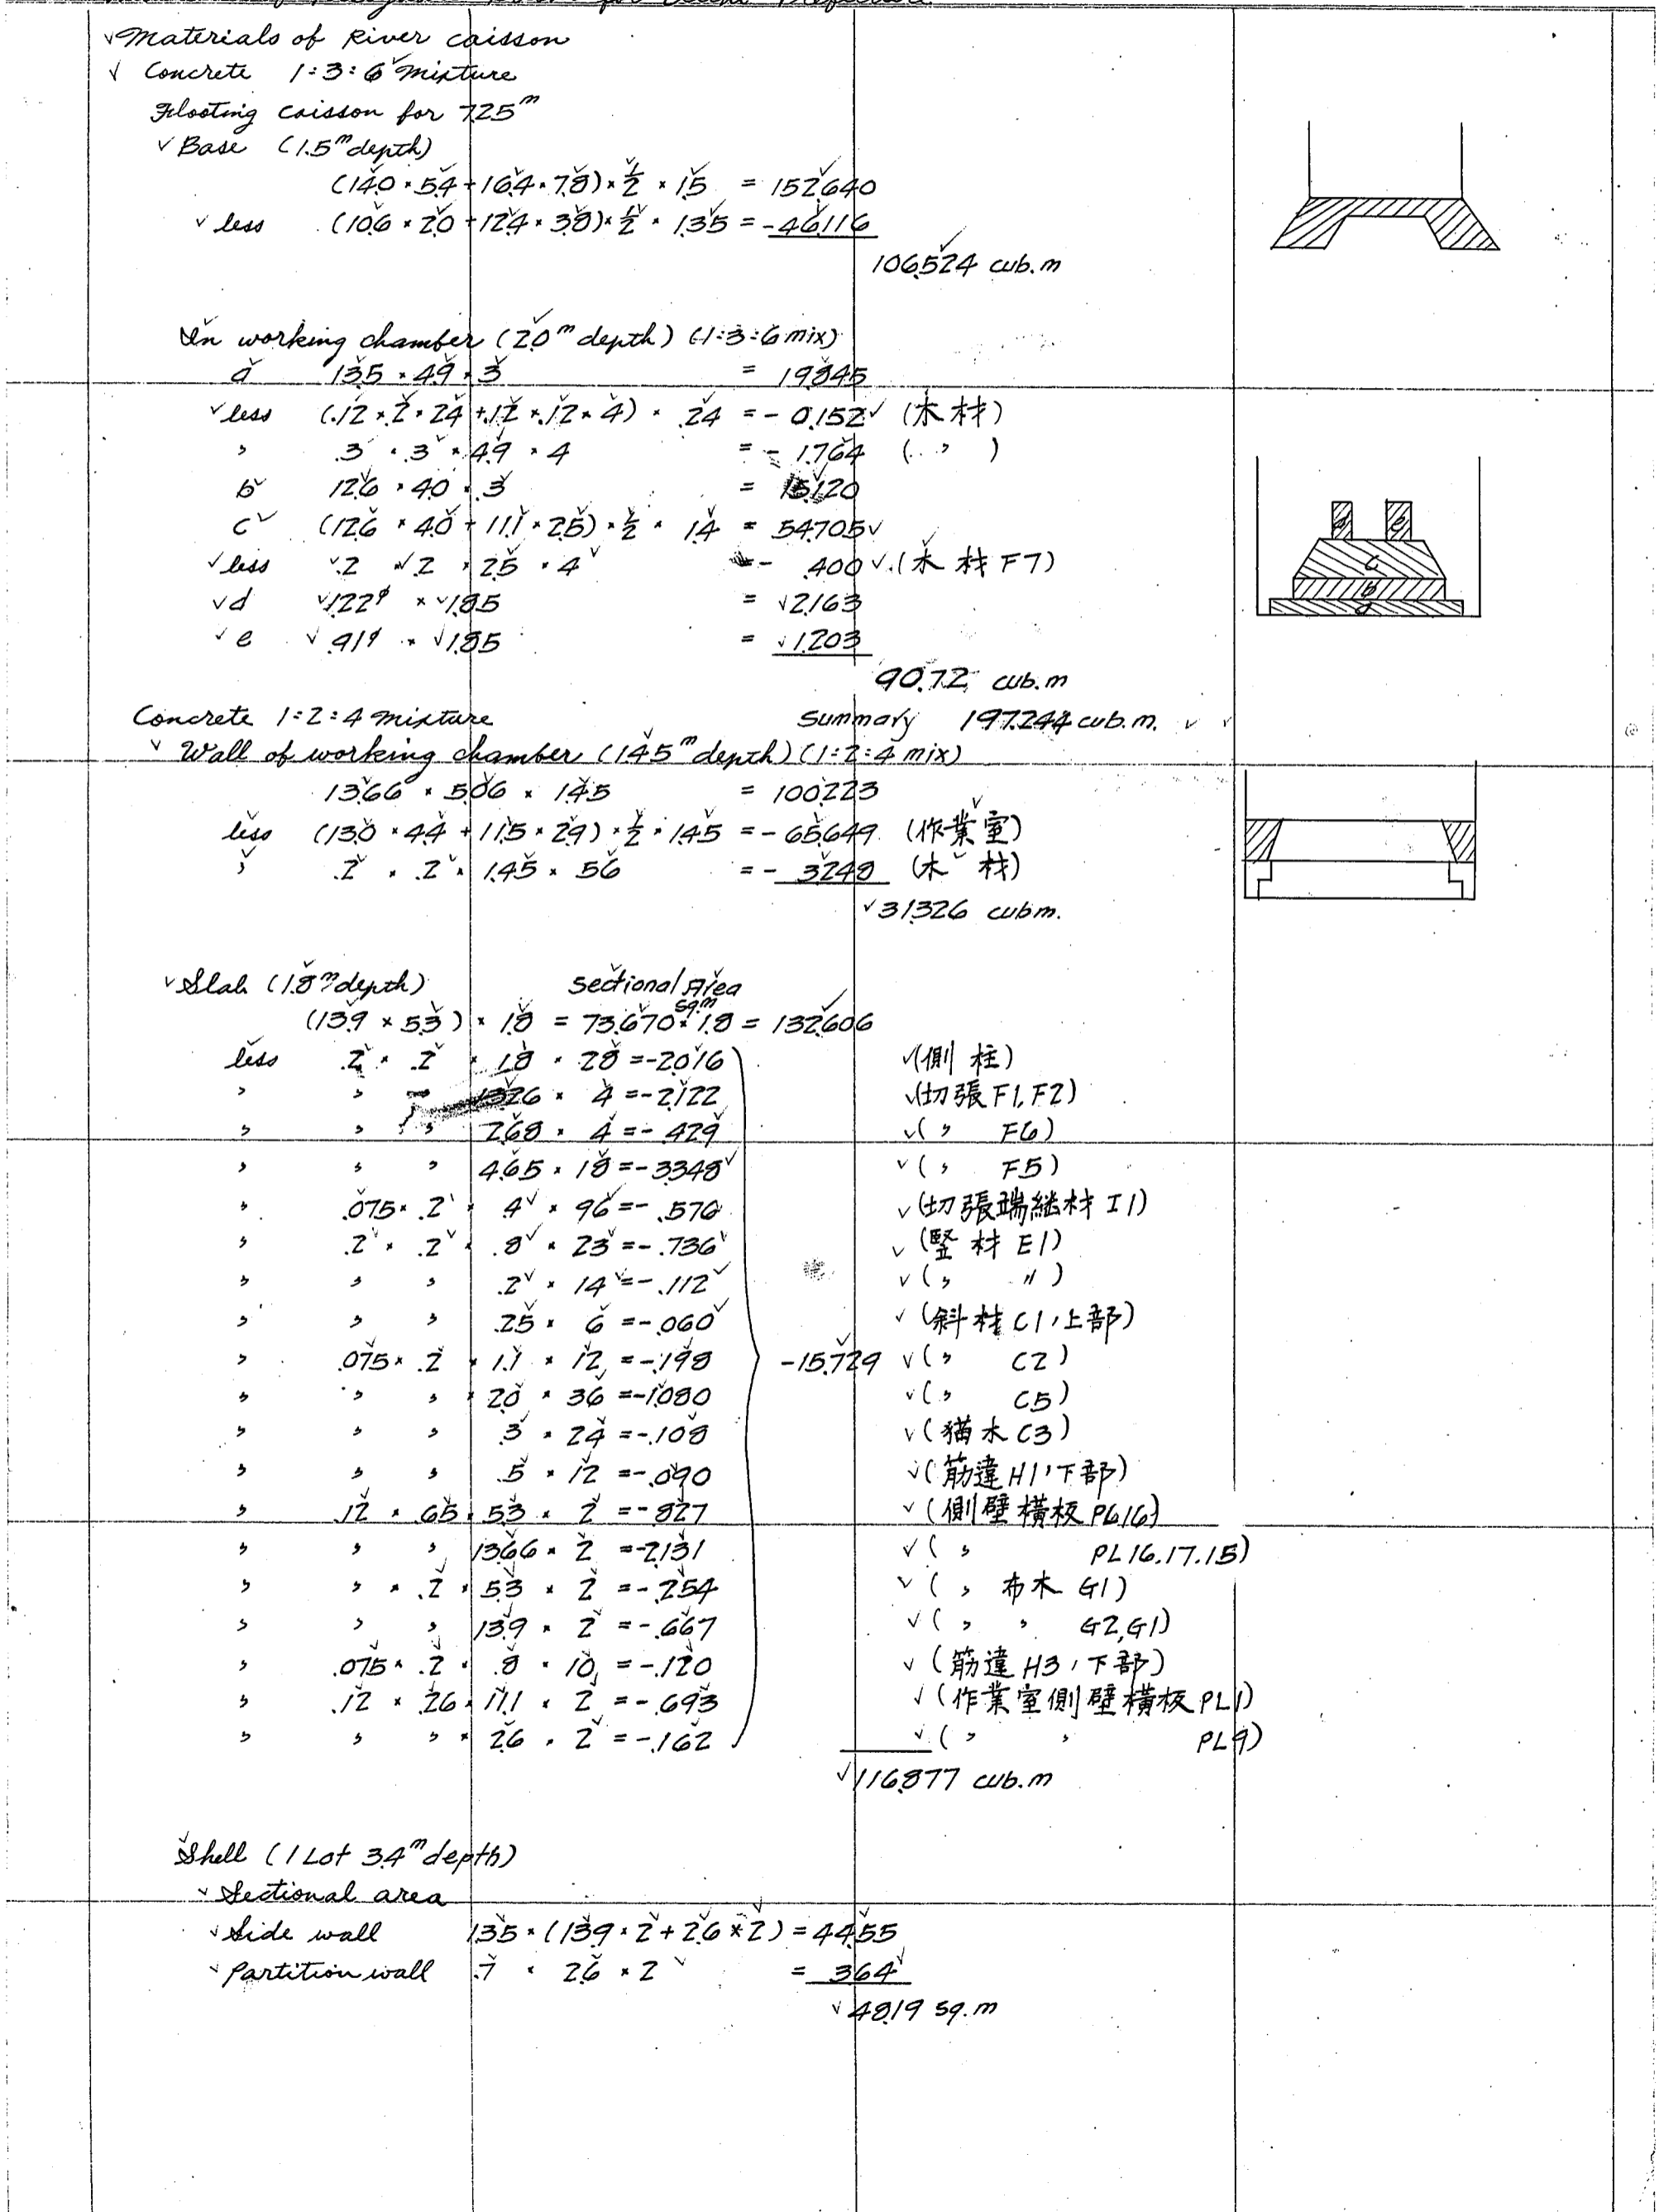 Materials of River caisson
Concrete 1:3:6 mixture
Floating caisson for 7.25m
Base (1.5m depth)
(14.0 × 5.4 + 16.4 × 7.8) × 1/2 × 1.5 = 152.640
less (10.6 × 2.0 + 12.4 × 3.8) × 1/2 × 1.35 = -46.116
106.524 cub.m
In working chamber (2.0m depth) (1:3:6 mix)
a 13.5 × 4.9 × .3 = 19.845
less (.12 × .2 × 24 + .12 × .12 × 4) × .24 = - 0.152 (木材)
〃 .3 × .3 × 4.9 × 4 = - 1.764 ( 〃 )
b 12.6 × 4.0 × .3 = 15.120
c (12.6 × 4.0 + 11.1 × 2.5) × 1/2 × 1.4 = 54.705
less .2 × .2 × 2.5 × 4 = - .400 (木材 F7)
d 1.22φ × 1.85 = 2.163
e .91φ × 1.85 = 1.203
90.72 cub.m
Concrete 1:2:4 mixture Summary 197.244 cub.m.
Wall of working chamber (1.45m depth) (1:2:4 mix)
13.66 × 5.06 × 1.45 = 100.223
less (13.0 × 4.4 + 11.5 × 2.9) × 1/2 × 1.45 = - 65.649 (作業室)
〃 .2 × .2 × 1.45 × 56 = - 3.248 (木材)
31.326 cub m.
Slab (1.8m depth) Sectional Area
(13.9 × 5.3) × 1.8 = 73.670 sq.m × 1.8 = 132.606
less .2 × .2 × 1.8 × 28 = -2.016 (側柱)
〃 〃 13.26 × 4 = -2.122 (切張 F1, F2)
〃 〃 〃 2.68 × 4 = - .429 ( 〃 F6)
〃 〃 〃 4.65 × 18 = -3.348 ( 〃 F5)
〃 .075 × .2 × .4 × 96 = - .576 (切張端継材 I1)
〃 .2 × .2 × .8 × 23 = - .736 (竪材 E1)
〃 〃 〃 .2 × 14 = - .112 ( 〃 〃 )
〃 〃 〃 .25 × 6 = -.060 (斜材 C1, 上部)
〃 .075 × .2 × 1.1 × 12 = -.198 -15.729 ( 〃 C2)
〃 〃 〃 × 2.0 × 36 = -1.080 ( 〃 C5)
〃 〃 〃 .3 × 24 = -.108 (猫木 C3)
〃 〃 〃 .5 × 12 = -.090 (筋違 H1, 下部)
〃 .12 × .65 × 5.3 × 2 = -.827 (側壁横板 PL16)
〃 〃 〃 13.66 × 2 = -2.131 ( 〃 PL16.17.15)
〃 〃 × .2 × 5.3 × 2 = -.254 ( 〃 布木 G1)
〃 〃 〃 13.9 × 2 = -.667 ( 〃 〃 G2, G1)
〃 .075 × .2 × .8 × 10 = -.120 (筋違 H3, 下部)
〃 .12 × .26 × 11.1 × 2 = -.693 (作業室側壁横板 PL1)
〃 〃 〃 × 2.6 × 2 = -.162 ( 〃 〃 PL9)
116.877 cub.m
Shell (1 Lot 3.4m depth)
Sectional area
Side wall 1.35 × (13.9 × 2 + 2.6 × 2) = 44.55
Partition wall .7 × 2.6 × 2 = 3.64
48.19 sq.m
d
e
c
b
a